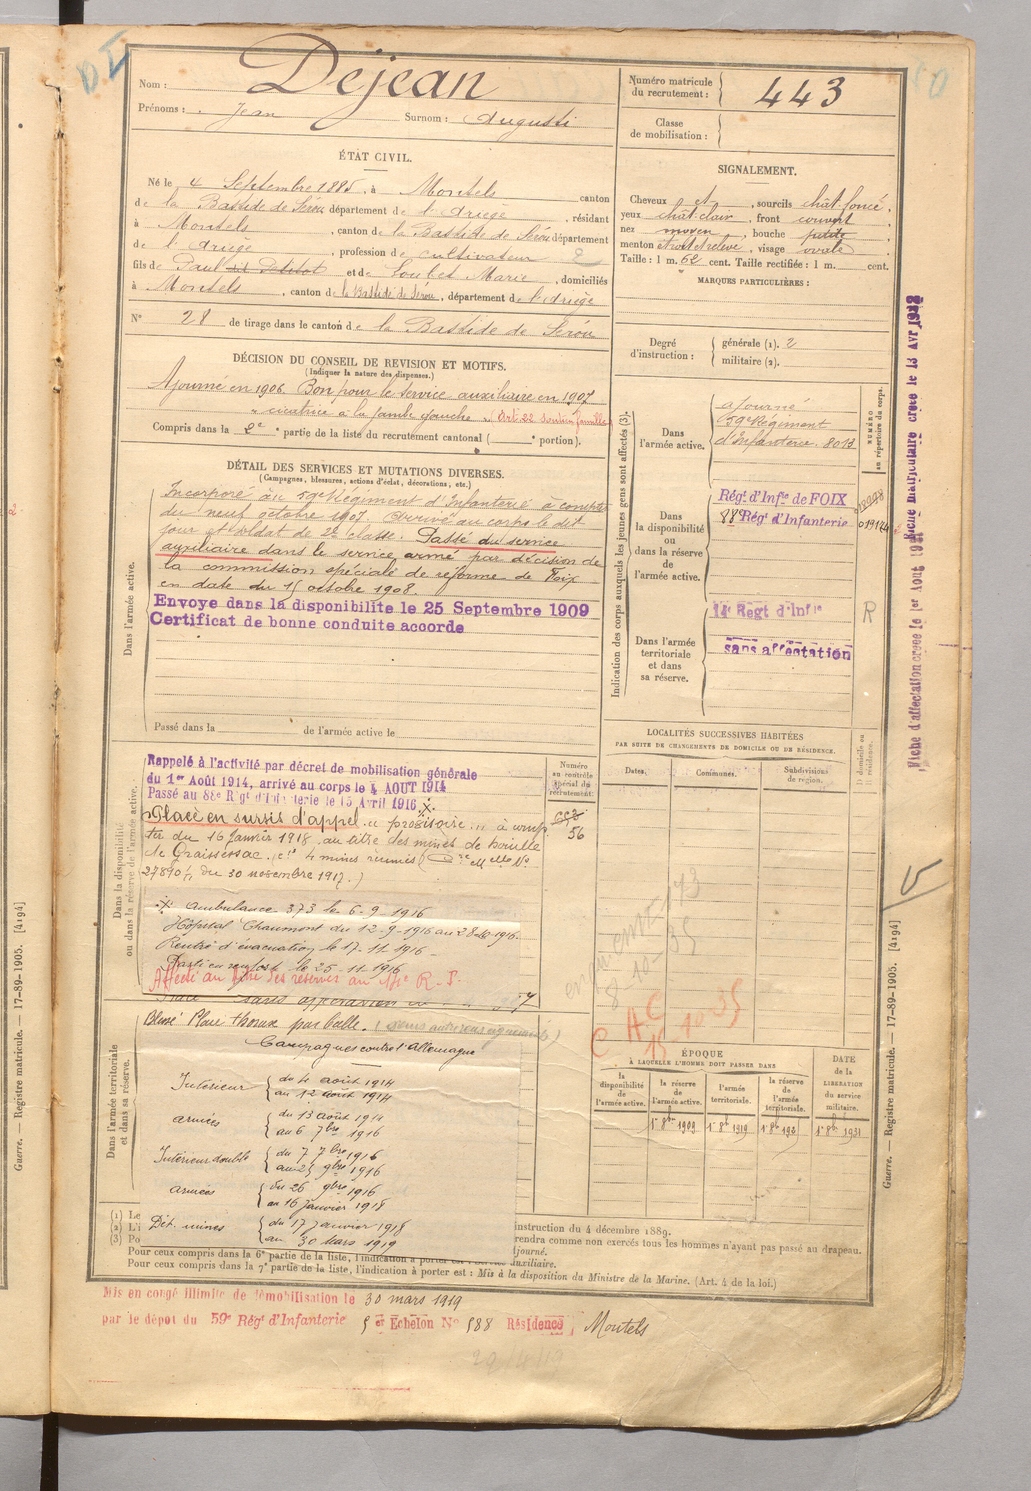 Nom : Dejean
Prénoms : Jean Surnom : Augusti
Numéro matricule du recrutement : 443
Classe de mobilisation :
ÉTAT CIVIL.
Né le 4 Septembre 1885, à Montels canton
de la Bastide de Sérou département de l'Ariège, résidant
à Montels, canton de la Bastide de Sérou département
de l'Ariège, profession de cultivateur
fils de Paul et de Loubet Marie, domiciliés
à Montels, canton de la Bastide de Sérou, département de l'Ariège
N° 28 de tirage dans le canton de la Bastide de Sérou
SIGNALEMENT.
Cheveux et, sourcils chat. foncé,
yeux chat. clair, front couvert
nez moyen, bouche petite,
menton, visage ovale
Taille : 1 m. 62 cent. Taille rectifiée : 1 m. cent.
MARQUES PARTICULIÈRES :
Degré d'instruction : générale (1). 2
militaire (2).
DÉCISION DU CONSEIL DE REVISION ET MOTIFS.
(Indiquer la nature des dispenses.)
Ajourné en 1906. Bon pour le service auxiliaire en 1907
cicatrice à la jambe gauche (Art. 22 soutien famille)
Compris dans la 2e partie de la liste du recrutement cantonal ( portion).
DÉTAIL DES SERVICES ET MUTATIONS DIVERSES.
(Campagnes, blessures, actions d'éclat, décorations, etc.)
Dans l'armée active.
Incorporé au 59e Régiment d'Infanterie à compter
du neuf octobre 1907. Arrivé au corps le dit
jour et soldat de 2e classe. Passé du service
auxiliaire dans le service armé par décision de
la commission spéciale de réforme de Foix
en date du 15 octobre 1908.
Envoye dans la disponibilite le 25 Septembre 1909
Certificat de bonne conduite accorde
Passé dans la de l'armée active le
Indication des corps auxquels les jeunes gens sont affectés (3).
NUMÉRO au répertoire du corps.
Dans l'armée active.
ajourné
59e Régiment
d'Infanterie. 8013
Dans la disponibilité ou dans la réserve de l'armée active.
Régt d'Infie de FOIX
88e Régt d'Infanterie
Dans l'armée territoriale et dans sa réserve.
14e Regt d'Infie R
sans affectation
Fiche d'affectation créée le 1er Août 19
Fiche matriculaire créée le 13 Avr
Dans la disponibilité ou dans la réserve de l'armée active.
Rappelé à l'activité par décret de mobilisation générale
du 1er Août 1914, arrivé au corps le 4 AOUT 1914
Passé au 88e Régt d'Infanterie le 15 Avril 1916
Placé en sursis d'appel provisoire à comp
ter du 16 Janvier 1918 au titre des mines de houille
de Graissessac
27890 du 30 novembre 1917.)
Ambulance 373 le 6-9-1916
Hôpital Chaumont du 12-9-1916 au 28-10-1916
Rentré d'évacuation le 17-11-1916
Parti en renfort le 25-11-1916
Numéro au contrôle spécial du recrutement.
56
LOCALITÉS SUCCESSIVES HABITÉES
PAR SUITE DE CHANGEMENTS DE DOMICILE OU DE RÉSIDENCE.
Dates. Communes. Subdivisions de région. D domicile ou R résidence.
8-10-35
C A C
18-10-35
Dans l'armée territoriale et dans sa réserve.
Blessé Plaie thorax par balle.
Campagnes contre l'Allemagne
Intérieur du 4 août 1914
au 12 août 1914
Armées du 13 août 1914
au 6 7bre 1916
Intérieur double du 7 7bre 1916
au 25 9bre 1916
Armées du 26 9bre 1916
au 16 Janvier 1918
Dét. mines du 17 Janvier 1918
au 30 mars 1919
ÉPOQUE
À LAQUELLE L'HOMME DOIT PASSER DANS
la disponibilité de l'armée active. la réserve de l'armée active. l'armée territoriale. la réserve de l'armée territoriale.
DATE de la LIBÉRATION du service militaire.
1er 8bre 1909 1er 8bre 1919 1er 8bre 1931
(1) Le
(2) L'i instruction du 4 décembre 1889.
(3) Po rendra comme non exercés tous les hommes n'ayant pas passé au drapeau.
journé.
Pour ceux compris dans la 6e partie de la liste, l'indication à porter est : auxiliaire.
Pour ceux compris dans la 7e partie de la liste, l'indication à porter est : Mis à la disposition du Ministre de la Marine. (Art. 4 de la loi.)
Guerre. — Registre matricule. — 17-89-1905. [4194]
Guerre. — Registre matricule. — 17-89-1905. [4194]
Mis en congé illimité de démobilisation le 30 mars 1919
par le dépot du 59e Régt d'Infanterie 5e Echelon N° 588 Résidence Montels